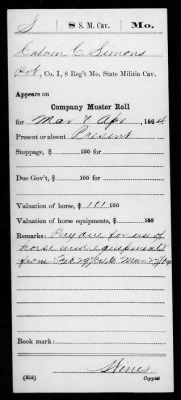 S 8 S. M. Cav. Mo.
Calvin C. Simons
Pvt, Co. I, 8 Reg't Mo. State Militia Cav.
Appears on
Company Muster Roll
for Mar & Apr, 1864
Present or absent Present
Stoppage, $ 100 for
Due Gov't, $ 100 for
Valuation of horse, $ 101 100
Valuation of horse equipments, $ 100
Remarks: Pay due for use of
horse and equipments
from Feb 29/64 to Mar 27/64
Book mark:
Hines
(858) Copyist